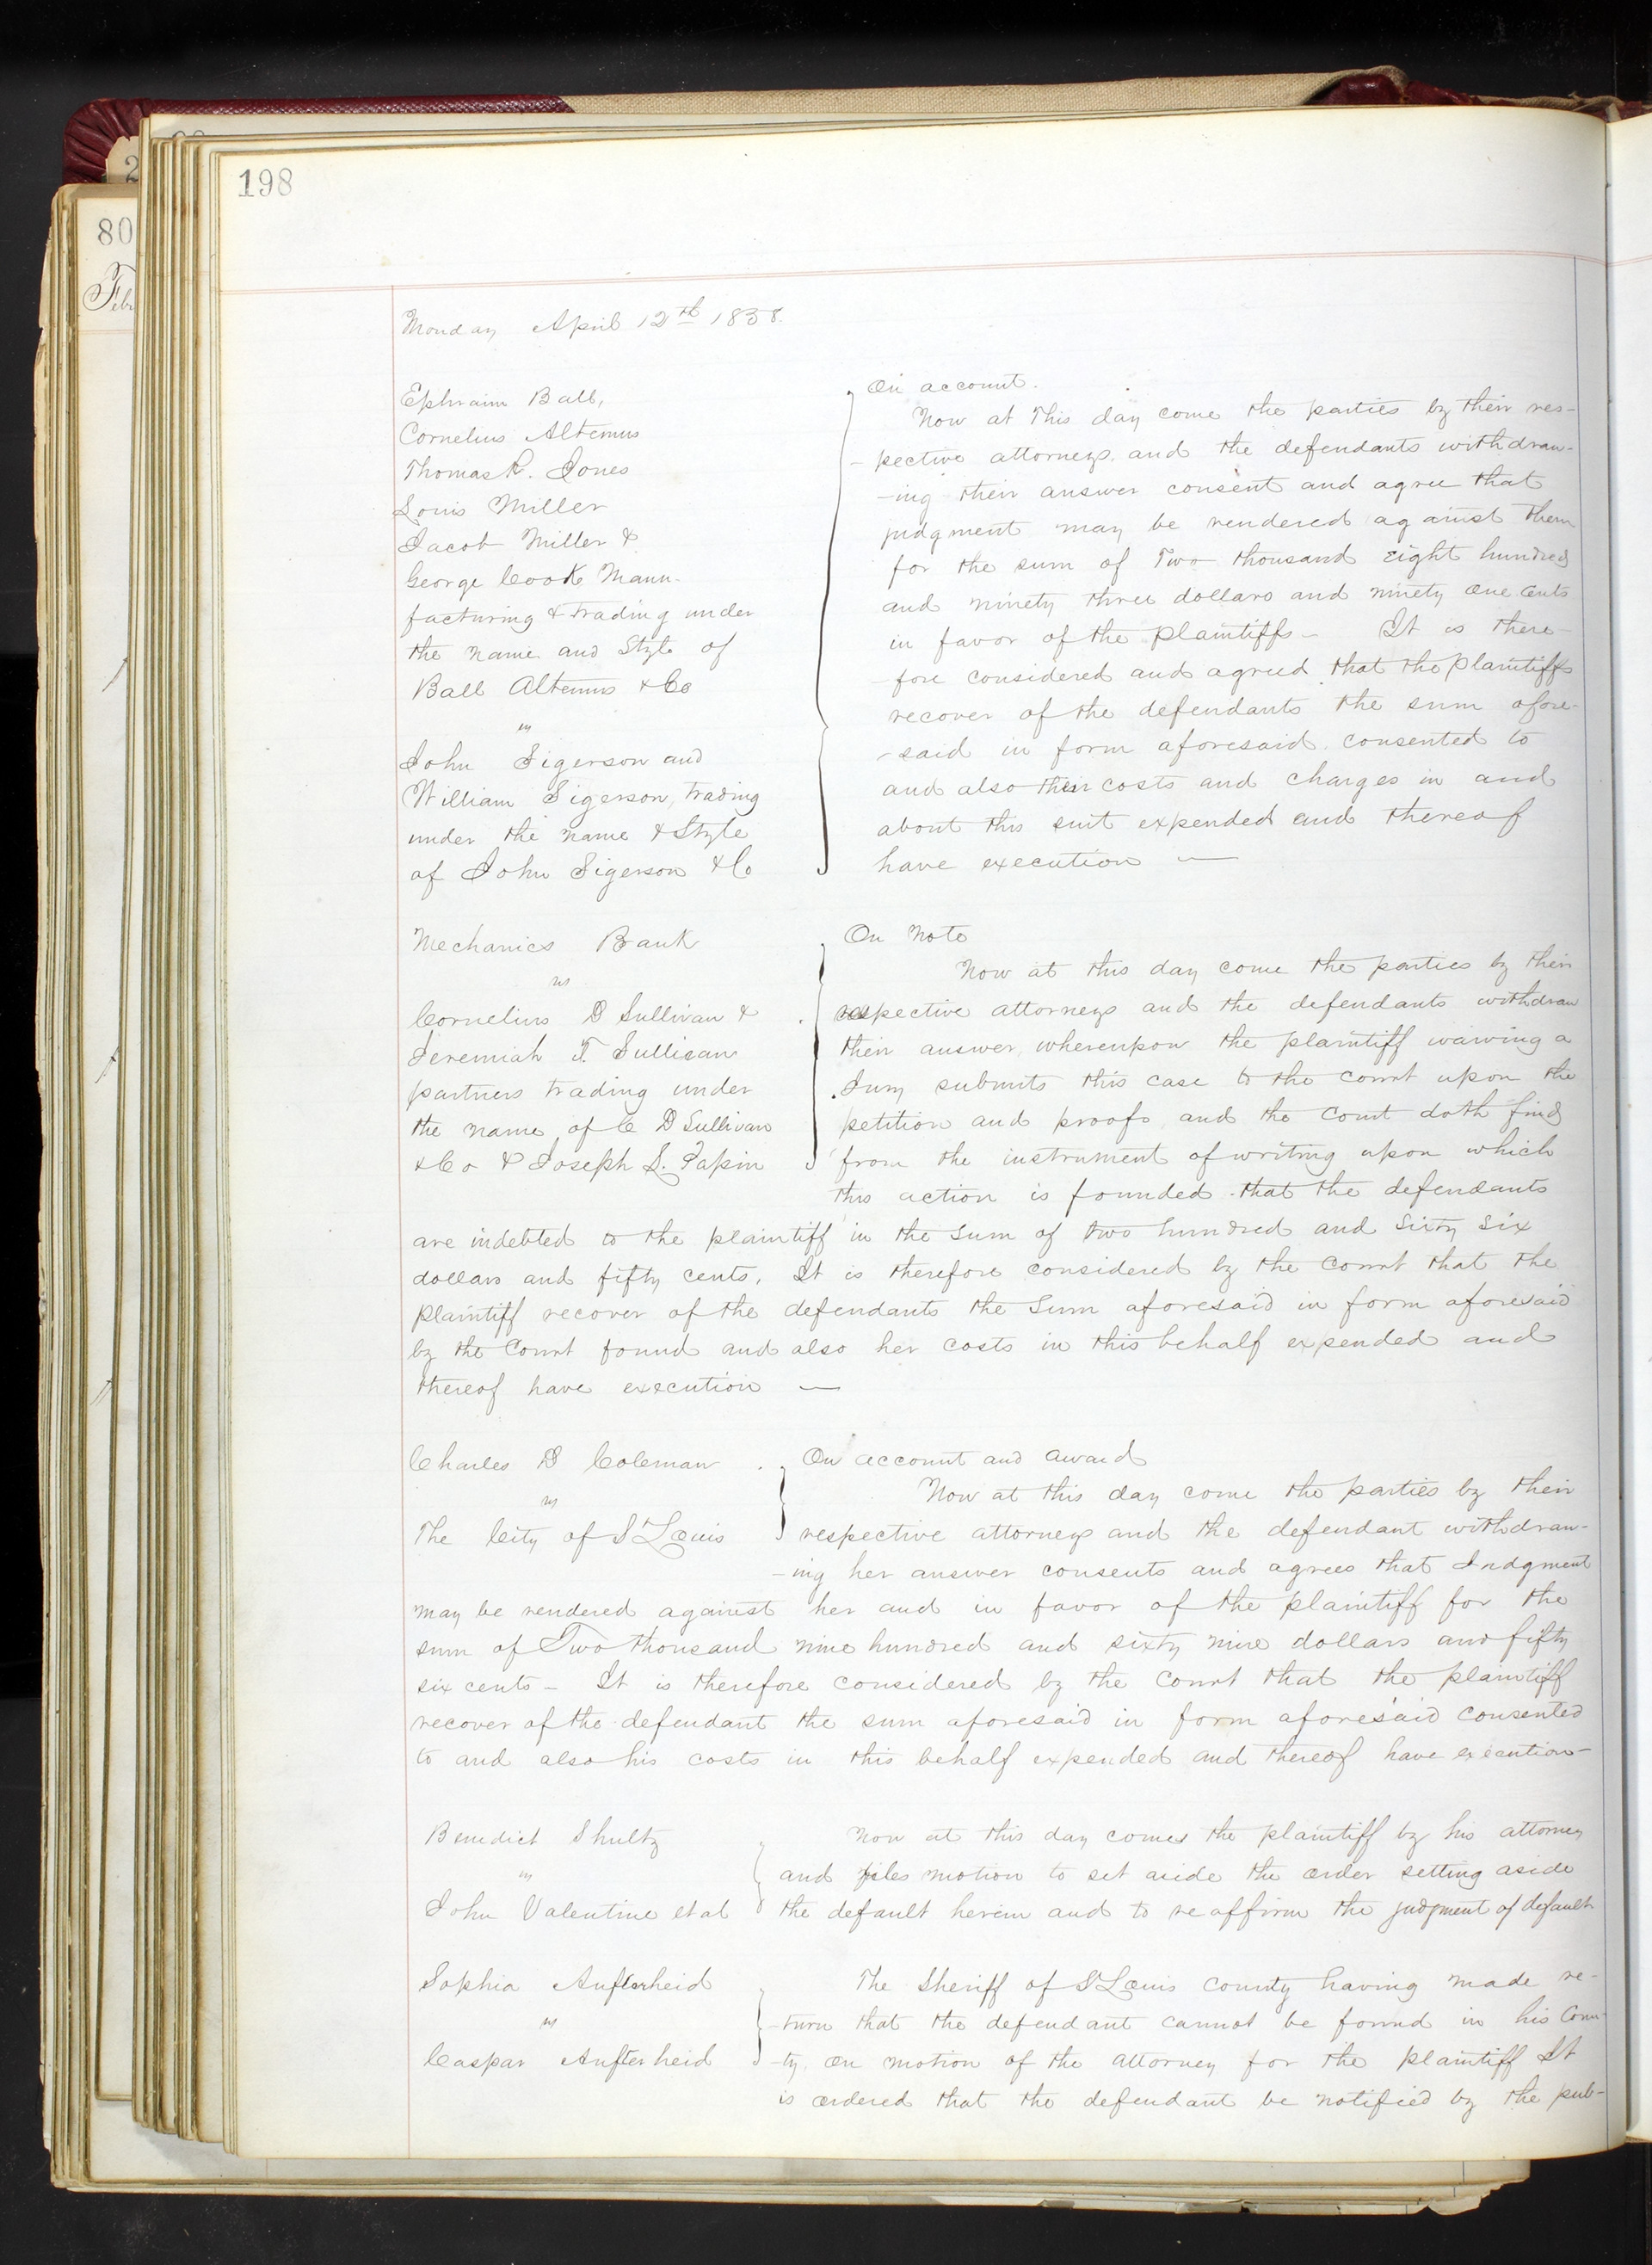 198
80
2
Feb
Monday April 12th 1858.
Ephraim Ball,
Cornelius Altemus
Thomas R. Jones
Louis Miller
Jacob Miller &
George Cook Manu-
facturing & trading under
the name and Style of
Ball Altemus & Co
vs
John Sigerson and
William Sigerson, trading
under the name & Style
of John Sigerson & Co
On account.
Now at This day come the parties by their res-
-pective attorneys and the defendants withdraw-
-ing their answer consent and agree that
judgment may be rendered against them
for the sum of Two thousand eight hundred
and ninety three dollars and ninety one cents
in favor of the plaintiffs - It is there-
-fore considered and agreed that the plaintiffs
recover of the defendants the sum afore-
-said in form aforesaid consented to
and also their costs and charges in and
about this suit expended and thereof
have execution —
Mechanics Bank
vs
Cornelius D Sullivan &
Jeremiah T. Sullivan
partners trading under
the name of C D Sullivan
& Co & Joseph L. Papin
On Note
Now at this day come the parties by their
respective attorneys and the defendants withdraw
their answer, whereupon the plaintiff waiving a
Jury submits this case to the court upon the
petition and proofs and the Court doth find
from the instrument of writing upon which
this action is founded that the defendants
are indebted to the plaintiff in the sum of two hundred and sixty six
dollars and fifty cents, It is therefore considered by the Court that the
plaintiff recover of the defendants the Sum aforesaid in form aforesaid
by the Court found and also her costs in this behalf expended and
thereof have execution —
Charles D Coleman
vs
The City of St Louis
On account and award
Now at this day come the parties by their
respective attorneys and the defendant withdraw-
-ing her answer consents and agrees that Judgment
may be rendered against her and in favor of the plaintiff for the
sum of Two thousand nine hundred and sixty nine dollars and fifty
six cents - It is therefore considered by the Court that the plaintiff
recover of the defendant the sum aforesaid in form aforesaid consented
to and also his costs in this behalf expended and thereof have execution -
Benedict Shultz
vs
John Valentine et al
Now at this day comes the plaintiff by his attorney
and files motion to set aside the order setting aside
the default herein and to reaffirm the judgment of default
Sophia Aufterheid
vs
Caspar Aufterheid
The Sheriff of St Louis County having made re-
-turn that the defendant cannot be found in his Coun-
-ty, on motion of the attorney for the plaintiff It
is ordered that the defendant be notified by the pub-